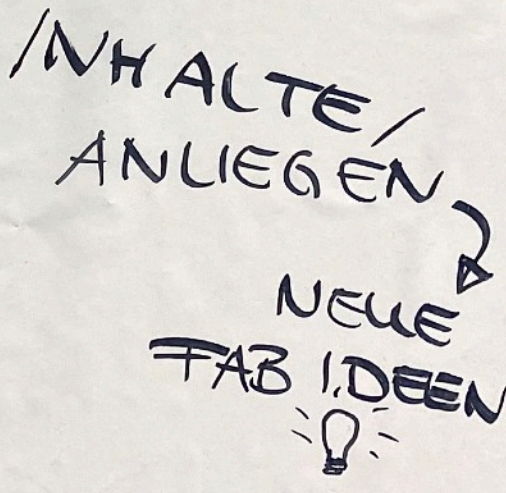 INHALTE/
ANLIEGEN
NEUE
FAB I.DEEN